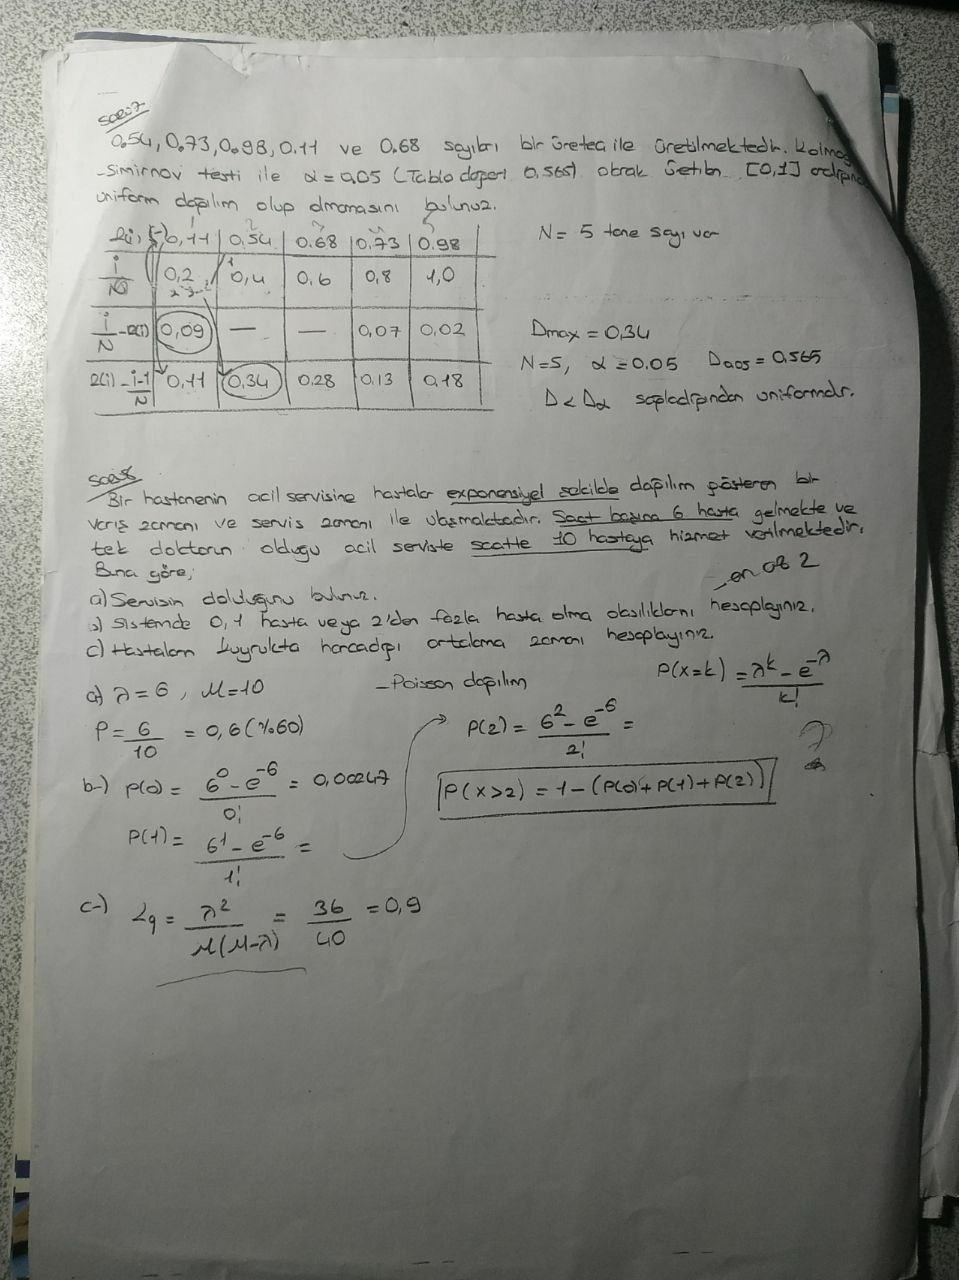 Soru 7
0.54, 0.73, 0.98, 0.11 ve 0,68 sayıları bir üreteç ile üretilmektedir. Kolmog
-Simirnov testi ile α = 0,05 (Tablo değeri 0,565) olarak üretilen [0,1] aralığında
uniform dağılım olup olmamasını bulunuz.
R(i) 0,11 0,54 0.68 0,73 0.98
N = 5 tane sayı var
i/N 0,2 0,4 0.6 0,8 1,0
i/N - R(i) 0,09 — — 0,07 0,02
Dmax = 0,34
R(i) - i-1/N 0,11 0,34 0.28 0.13 0,18
N=5, α = 0.05 D0.05 = 0.565
D < Dα sağladığından uniformdur.
Soru 8
Bir hastanenin acil servisine hastalar exponansiyel şekilde dağılım gösteren bir
varış zamanı ve servis zamanı ile ulaşmaktadır. Saat başına 6 hasta gelmekte ve
tek doktorun olduğu acil serviste saatte 10 hastaya hizmet verilmektedir.
Buna göre;
en az 2
a) Servisin doluluğunu bulunuz.
b) Sistemde 0, 1 hasta veya 2'den fazla hasta olma olasılıklarını hesaplayınız.
c) Hastaların kuyrukta harcadığı ortalama zamanı hesaplayınız.
a) λ = 6 , M = 10
-Poisson dağılım
P(x=k) = λ^k - e^-λ / k!
P = 6/10 = 0,6 (%60)
P(2) = 6^2 - e^-6 / 2! =
?
b-) P(0) = 6^0 - e^-6 / 0! = 0,00247
P(x>2) = 1 - (P(0) + P(1) + P(2))
P(1) = 6^1 - e^-6 / 1! =
c-) Lq = λ^2 / M(M-λ) = 36/40 = 0,9